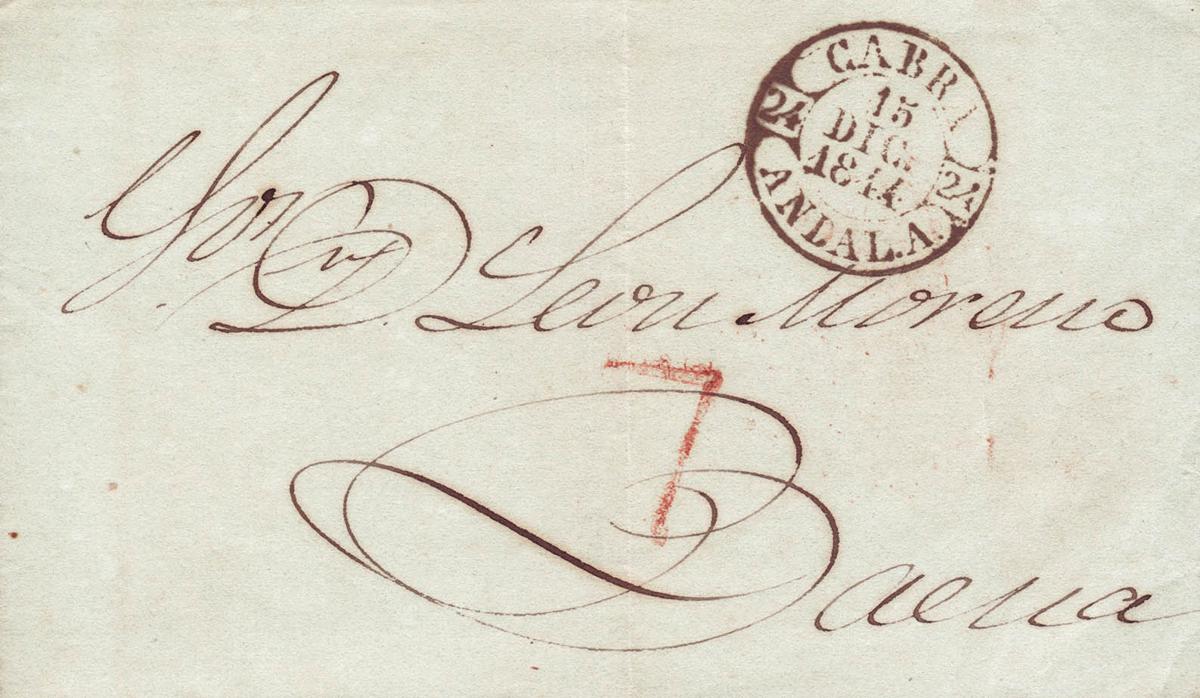 CABRA
24 24
15
DIC.
1844
ANDAL.A.
Sor. D. Leon Moreno
7
Baena